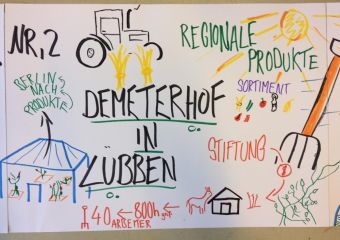 NR. 2
REGIONALE
PRODUKTE
SORTIMENT
BERLIN
NACH
PRODUKTE
DEMETERHOF
IN
LÜBBEN
STIFTUNG
40
ARBEITER
800h